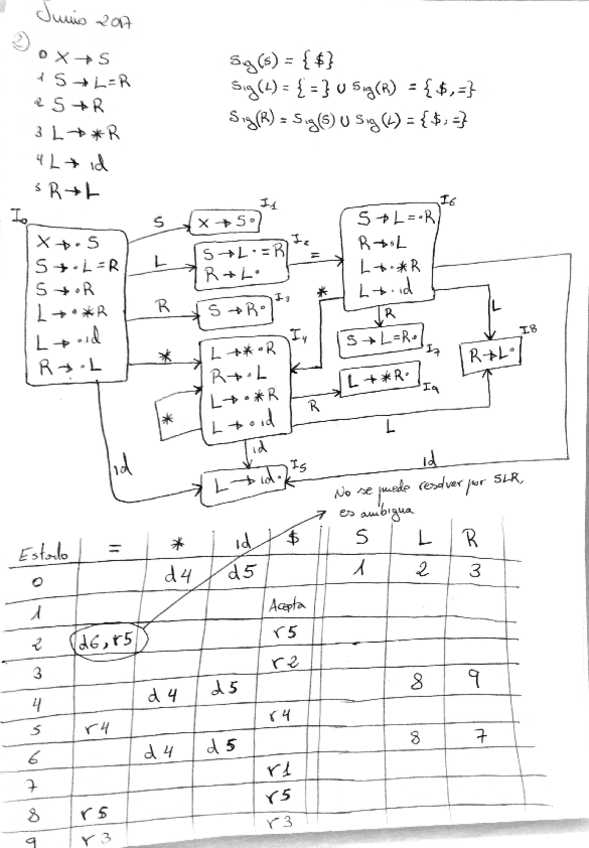 Junio 2017
2)
0 X → S
1 S → L=R
2 S → R
3 L → *R
4 L → id
5 R → L
Sig(S) = {$}
Sig(L) = {=} ∪ Sig(R) = {$,=}
Sig(R) = Sig(S) ∪ Sig(L) = {$,=}
I0
X → ·S
S → ·L=R
S → ·R
L → ·*R
L → ·id
R → ·L
S
I1
X → S·
L
I2
S → L·=R
R → L·
=
I6
S → L=·R
R → ·L
L → ·*R
L → ·id
R
I3
S → R·
*
I4
L → *·R
R → ·L
L → ·*R
L → ·id
*
*
R
I7
S → L=R·
L
I8
R → L·
R
I9
L → *R·
L
id
id
id
I5
L → id·
No se puede resolver por SLR,
es ambigua
Estado = * id $ S L R
0 d4 d5 1 2 3
1 Acepta
2 d6,r5 r5
3 r2
4 d4 d5 8 9
5 r4 r4
6 d4 d5 8 7
7 r1
8 r5 r5
9 r3 r3